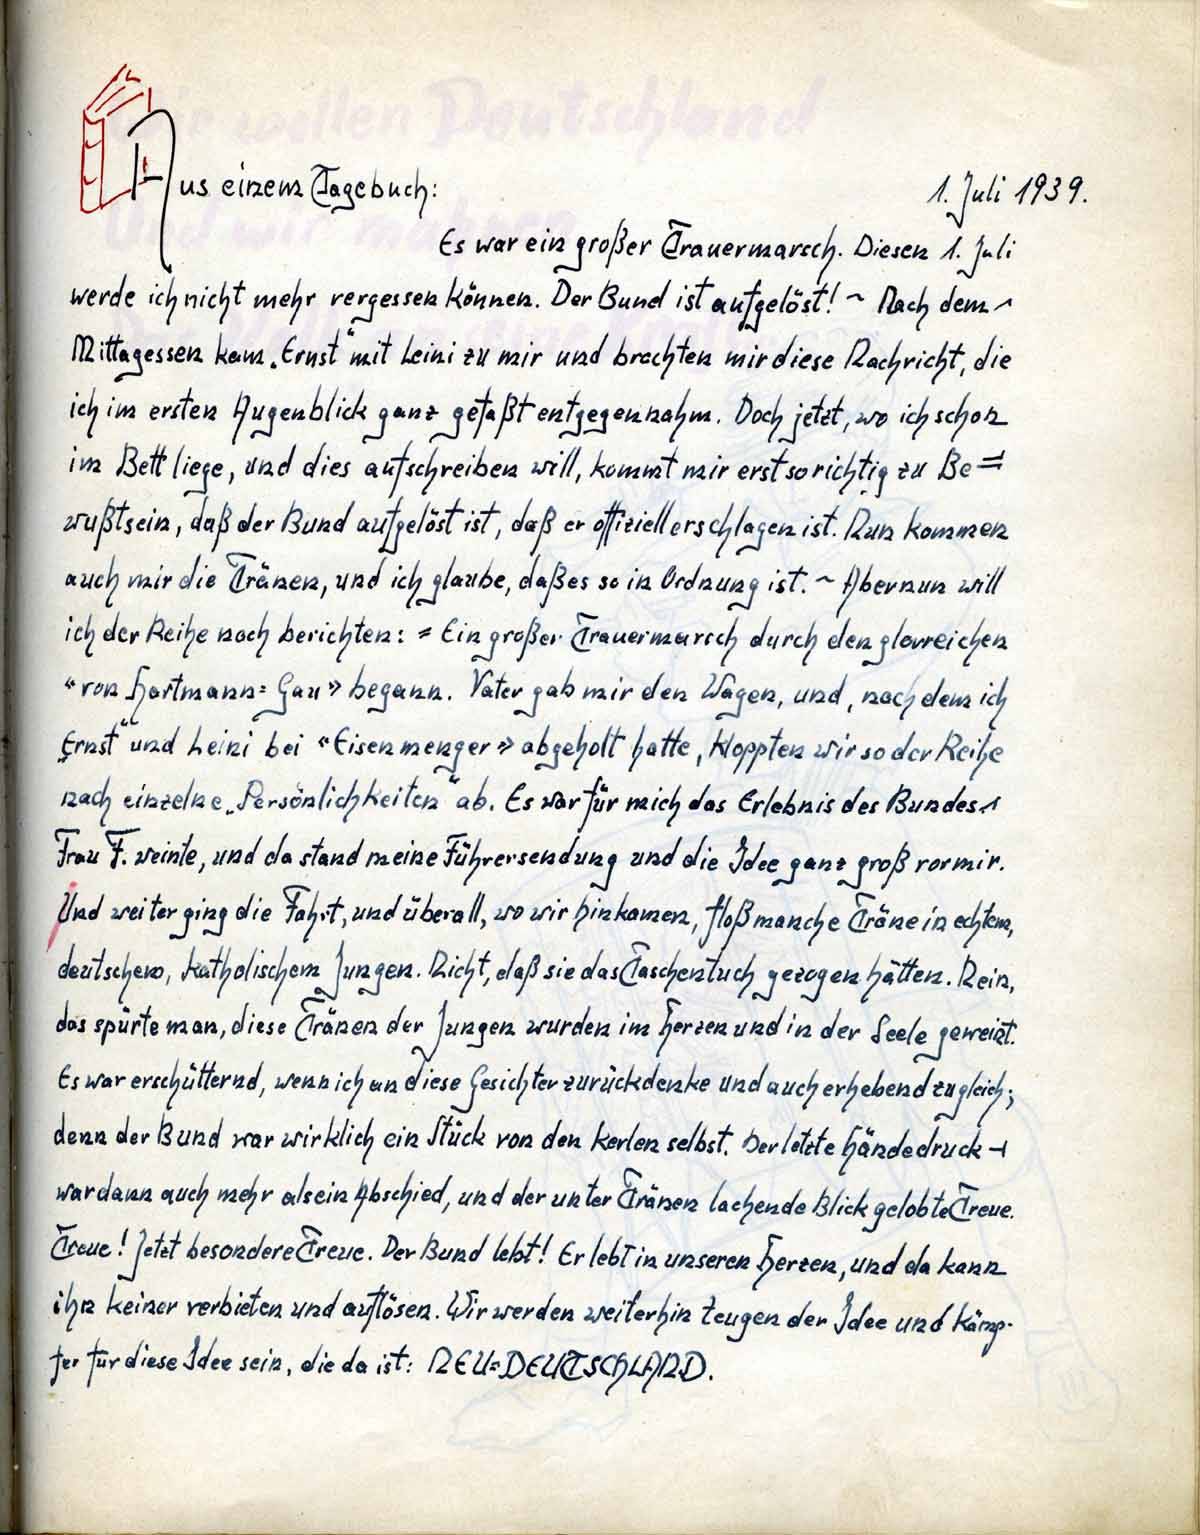 Aus einem Tagebuch: 1. Juli 1939.
Es war ein großer Trauermarsch. Diesen 1. Juli
werde ich nicht mehr vergessen können. Der Bund ist aufgelöst! ~ Nach dem
Mittagessen kam „Ernst“ mit Leini zu mir und brachten mir diese Nachricht, die
ich im ersten Augenblick ganz gefaßt entgegennahm. Doch jetzt, wo ich schon
im Bett liege, und dies aufschreiben will, kommt mir erst so richtig zu Be=
wußtsein, daß der Bund aufgelöst ist, daß er offiziell erschlagen ist. Nun kommen
auch mir die Tränen, und ich glaube, daß es so in Ordnung ist. ~ Aber nun will
ich der Reihe nach berichten: = Ein großer Trauermarsch durch den glorreichen
“von Hartmann=Gau” begann. Vater gab mir den Wagen, und, nach dem ich
„Ernst“ und Leini bei “Eisenmenger” abgeholt hatte, kloppten wir so der Reihe
nach einzelne „Persönlichkeiten“ ab. Es war für mich das Erlebnis des Bundes.
Frau F. weinte, und da stand meine Führersendung und die Idee ganz groß vor mir.
Und weiter ging die Fahrt, und überall, wo wir hinkamen, floß manche Träne in echtem,
deutschem, katholischem Jungen. Nicht, daß sie das Taschentuch gezogen hätten. Nein,
das spürte man, diese Tränen der Jungen wurden im Herzen und in der Seele geweint.
Es war erschütternd, wenn ich an diese Gesichter zurückdenke und auch erhebend zugleich;
denn der Bund war wirklich ein Stück von den Kerlen selbst. Der letzte Händedruck
war dann auch mehr als ein Abschied, und der unter Tränen lachende Blick gelobte Treue.
Treue! Jetzt besondere Treue. Der Bund lebt! Er lebt in unseren Herzen, und da kann
ihn keiner verbieten und auflösen. Wir werden weiterhin Zeugen der Idee und Kämp-
fer für diese Idee sein, die da ist: NEU=DEUTSCHLAND.